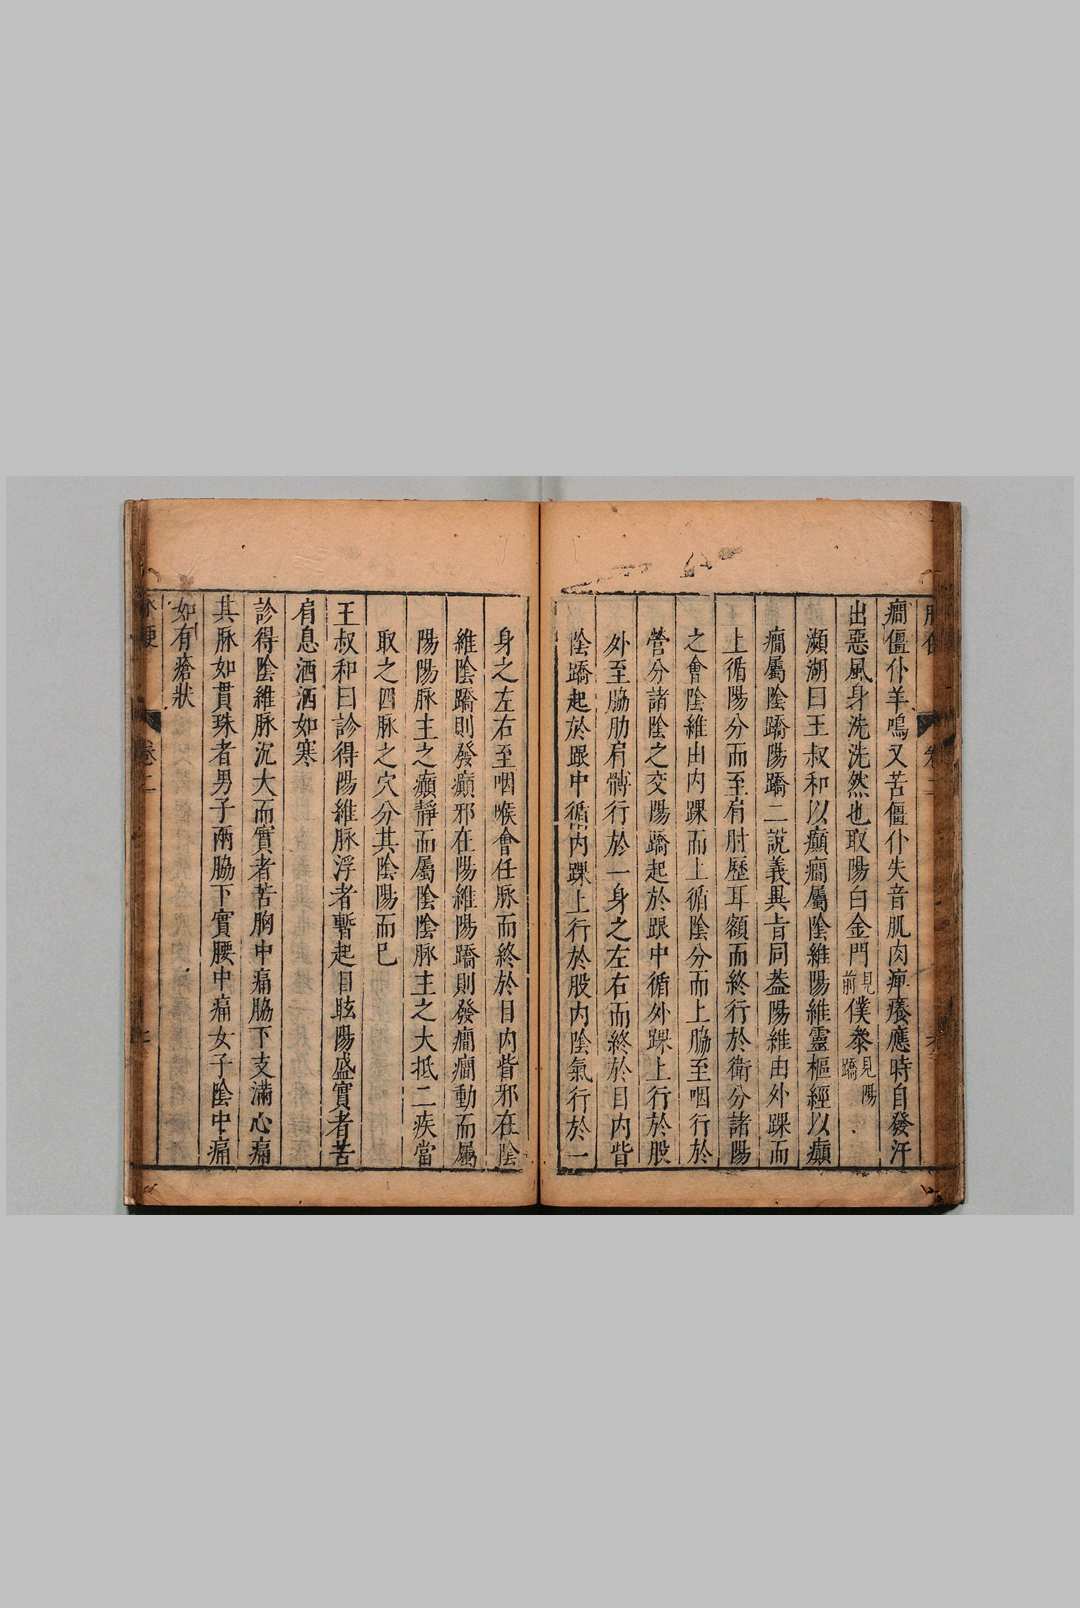 癎僵仆羊鳴又苦僵仆失音肌肉痺癢應時自發汗
出惡風身洗洗然也取陽白金門見前僕黍見陽蹻
瀕湖曰王叔和以癲癎屬陰維陽維靈樞經以癲
癎屬陰蹻陽蹻二說義異旨同葢陽維由外踝而
上循陽分而至肩肘歷耳額而終行於衛分諸陽
之會陰維由内踝而上循陰分而上脇至咽行於
營分諸陰之交陽蹻起於跟中循外踝上行於股
外至脇肋肩髆行於一身之左右而終於目内眥
陰蹻起於跟中循内踝上行於股内陰氣行於一
身之左右至咽喉會任脉而終於目内眥邪在陰
維陰蹻則發癲邪在陽維陽蹻則發癎癎動而屬
陽陽脉主之癲靜而屬陰陰脉主之大抵二疾當
取之四脉之穴分其陰陽而已
王叔和曰診得陽維脉浮者暫起目眩陽盛實者苦
肩息洒洒如寒
診得陰維脉沉大而實者苦胸中痛脇下支滿心痛
其脉如貫珠者男子兩脇下實腰中痛女子陰中痛
如有瘡狀
卷二